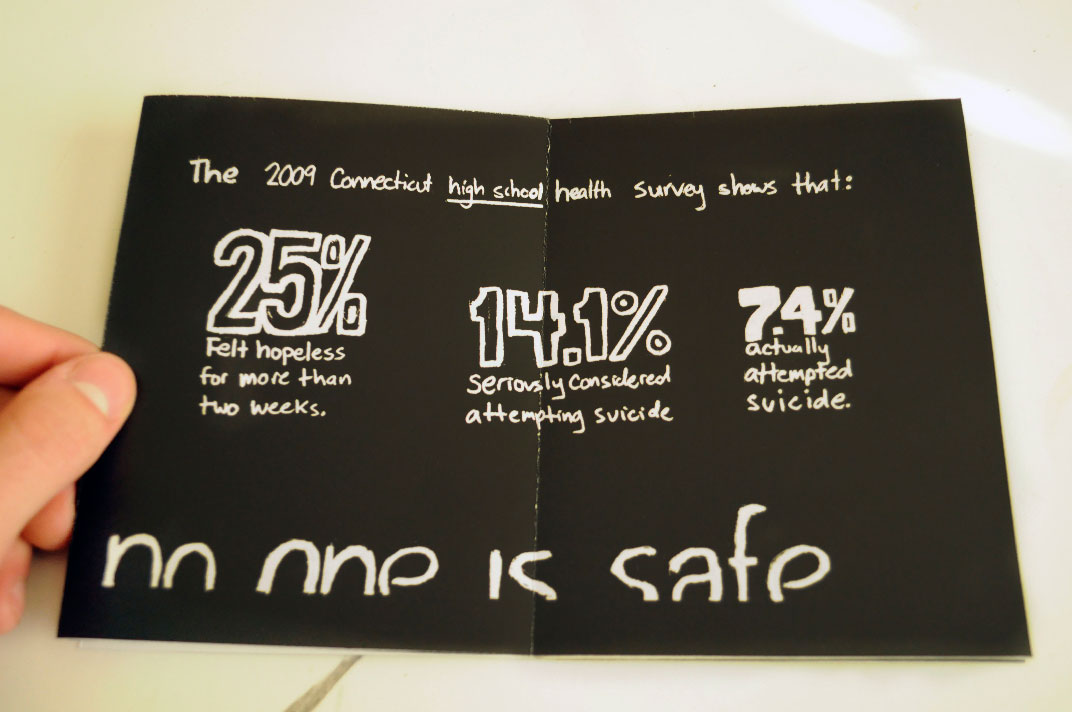 The 2009 Connecticut high school health survey shows that:
25%
Felt hopeless
for more than
two weeks.
14.1%
Seriously considered
attempting suicide
7.4%
actually
attempted
suicide.
no one is safe